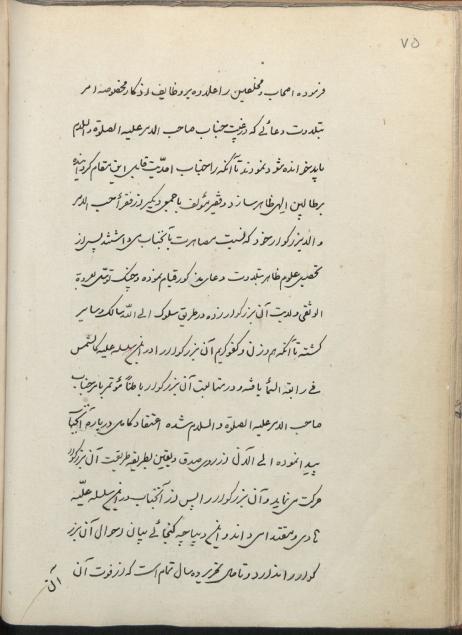 ۷۵
فرموده اصحاب و مخلصین را علاوه بر وظایف اذکار مخصوصه امر
بتلاوت دعائی که در غیبت جناب صاحب الامر علیه الصلوة والسلام
باید خوانده شود نمودند تا آنکه را جناب احدیت قابل این مقام گردانیده
بر طالبین الهی ظاهر سازد و فقیر مؤلف با جمعی دیگر از فقرا حسب الامر
والد بزرگوار خود که نسبت مصاهرت با آنجناب می داشتند پس از
تحصیل علوم ظاهر بتلاوت دعای مذکور قیام نموده و چنک توسل بعروة
الوثقی ولایت آن بزرگوار زده در طریق سلوک الی الله سالک و سایر
گشته تا آنکه هم وزن و کفو کریم آن بزرگوار را در این سلسله علیه کالشمس
فی رابعة السماء یافته و در متابعت آن بزرگوار باطناً مؤتمر بامر جناب
صاحب الامر علیه الصلوة و السلام شده اعتقاد کاملی درباره آنجناب
پیدا نموده الی الآن از روی صدق و یقین بطریقه طریقت آن بزرگوار
حرکت می نماید و آن بزرگوار را پس از آنجناب در این سلسله علیّه
هادی و مقتدا می داند و این دیباچه گنجایی بیان احوال آن بزر
گوار را ندارد و تا حال تحریر ده سال تمام است که از فوت آن
آن